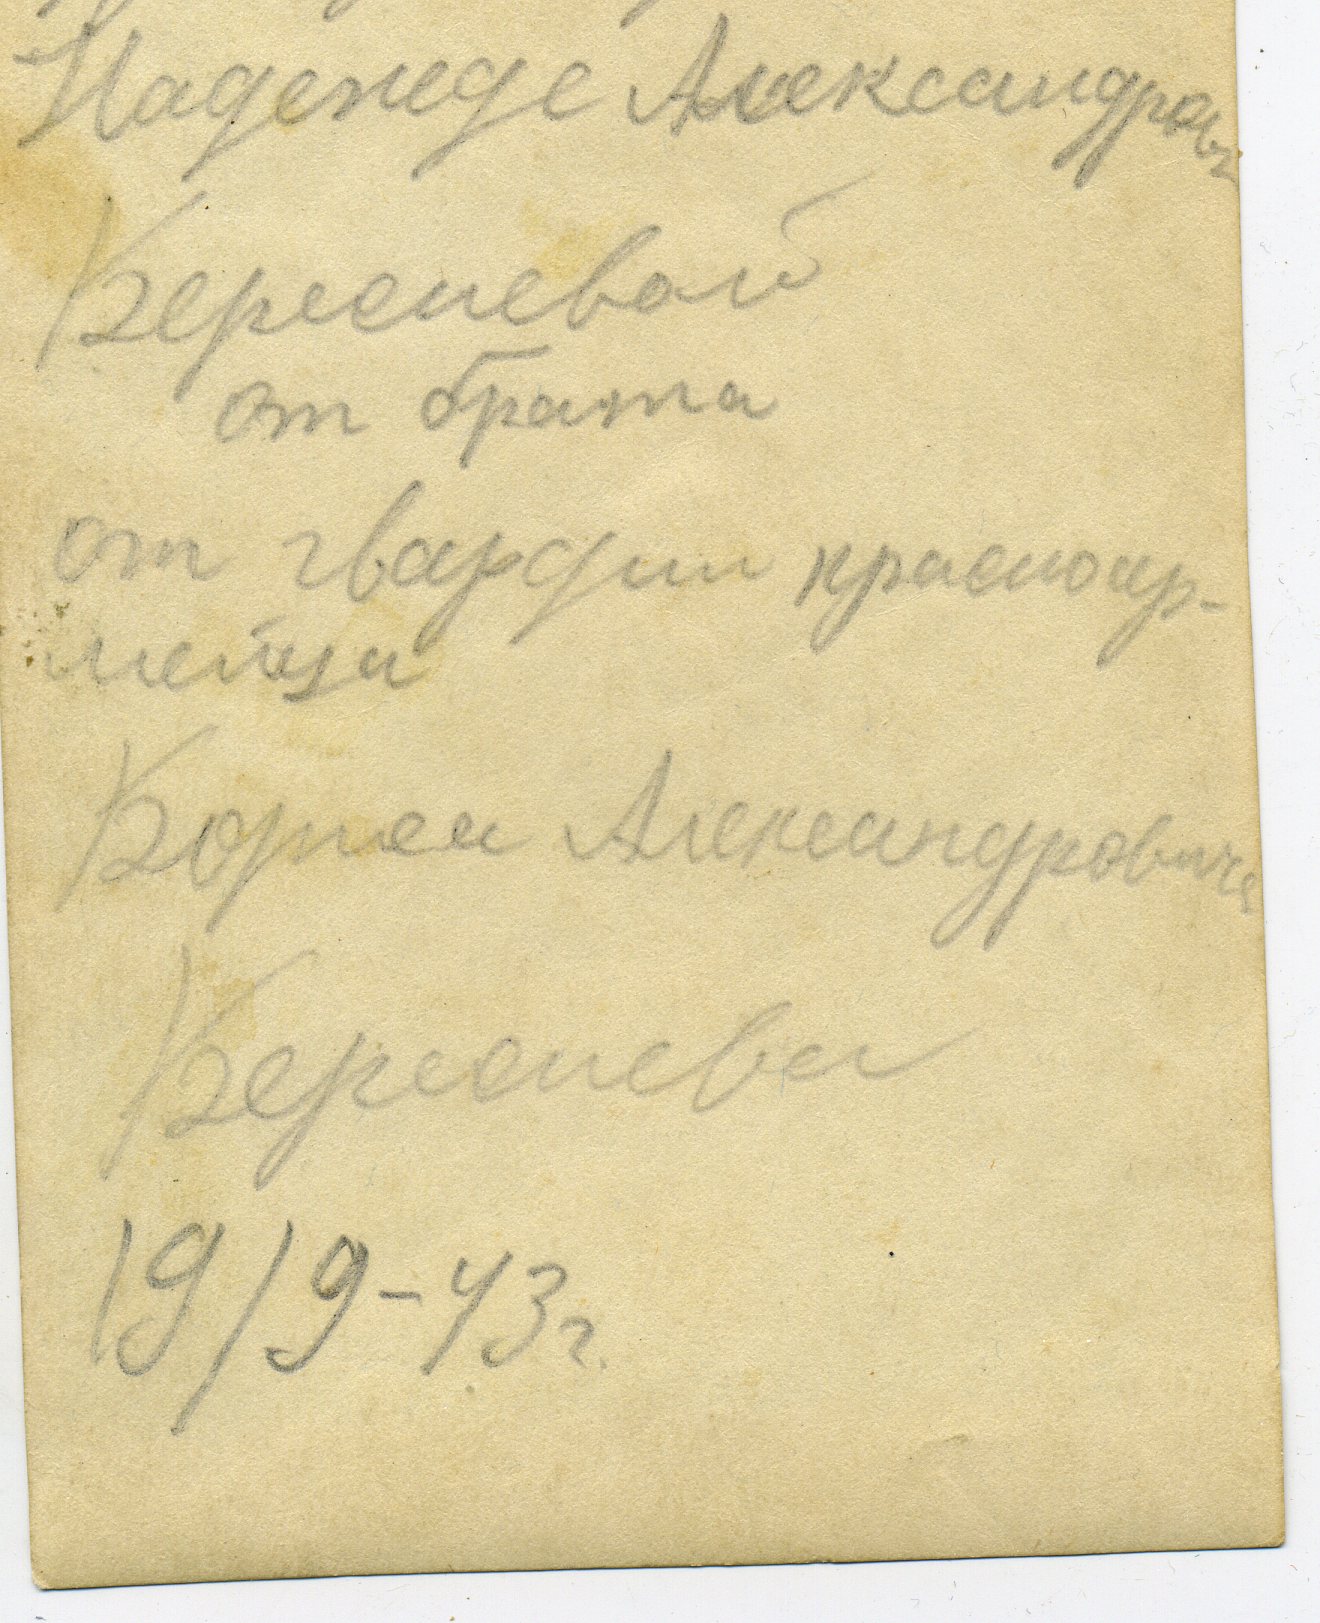 Надежде Александровн
Керсеневой
от брата
от гвардии красноар-
мейца
Александровича
Керсенева
19/9-43г.